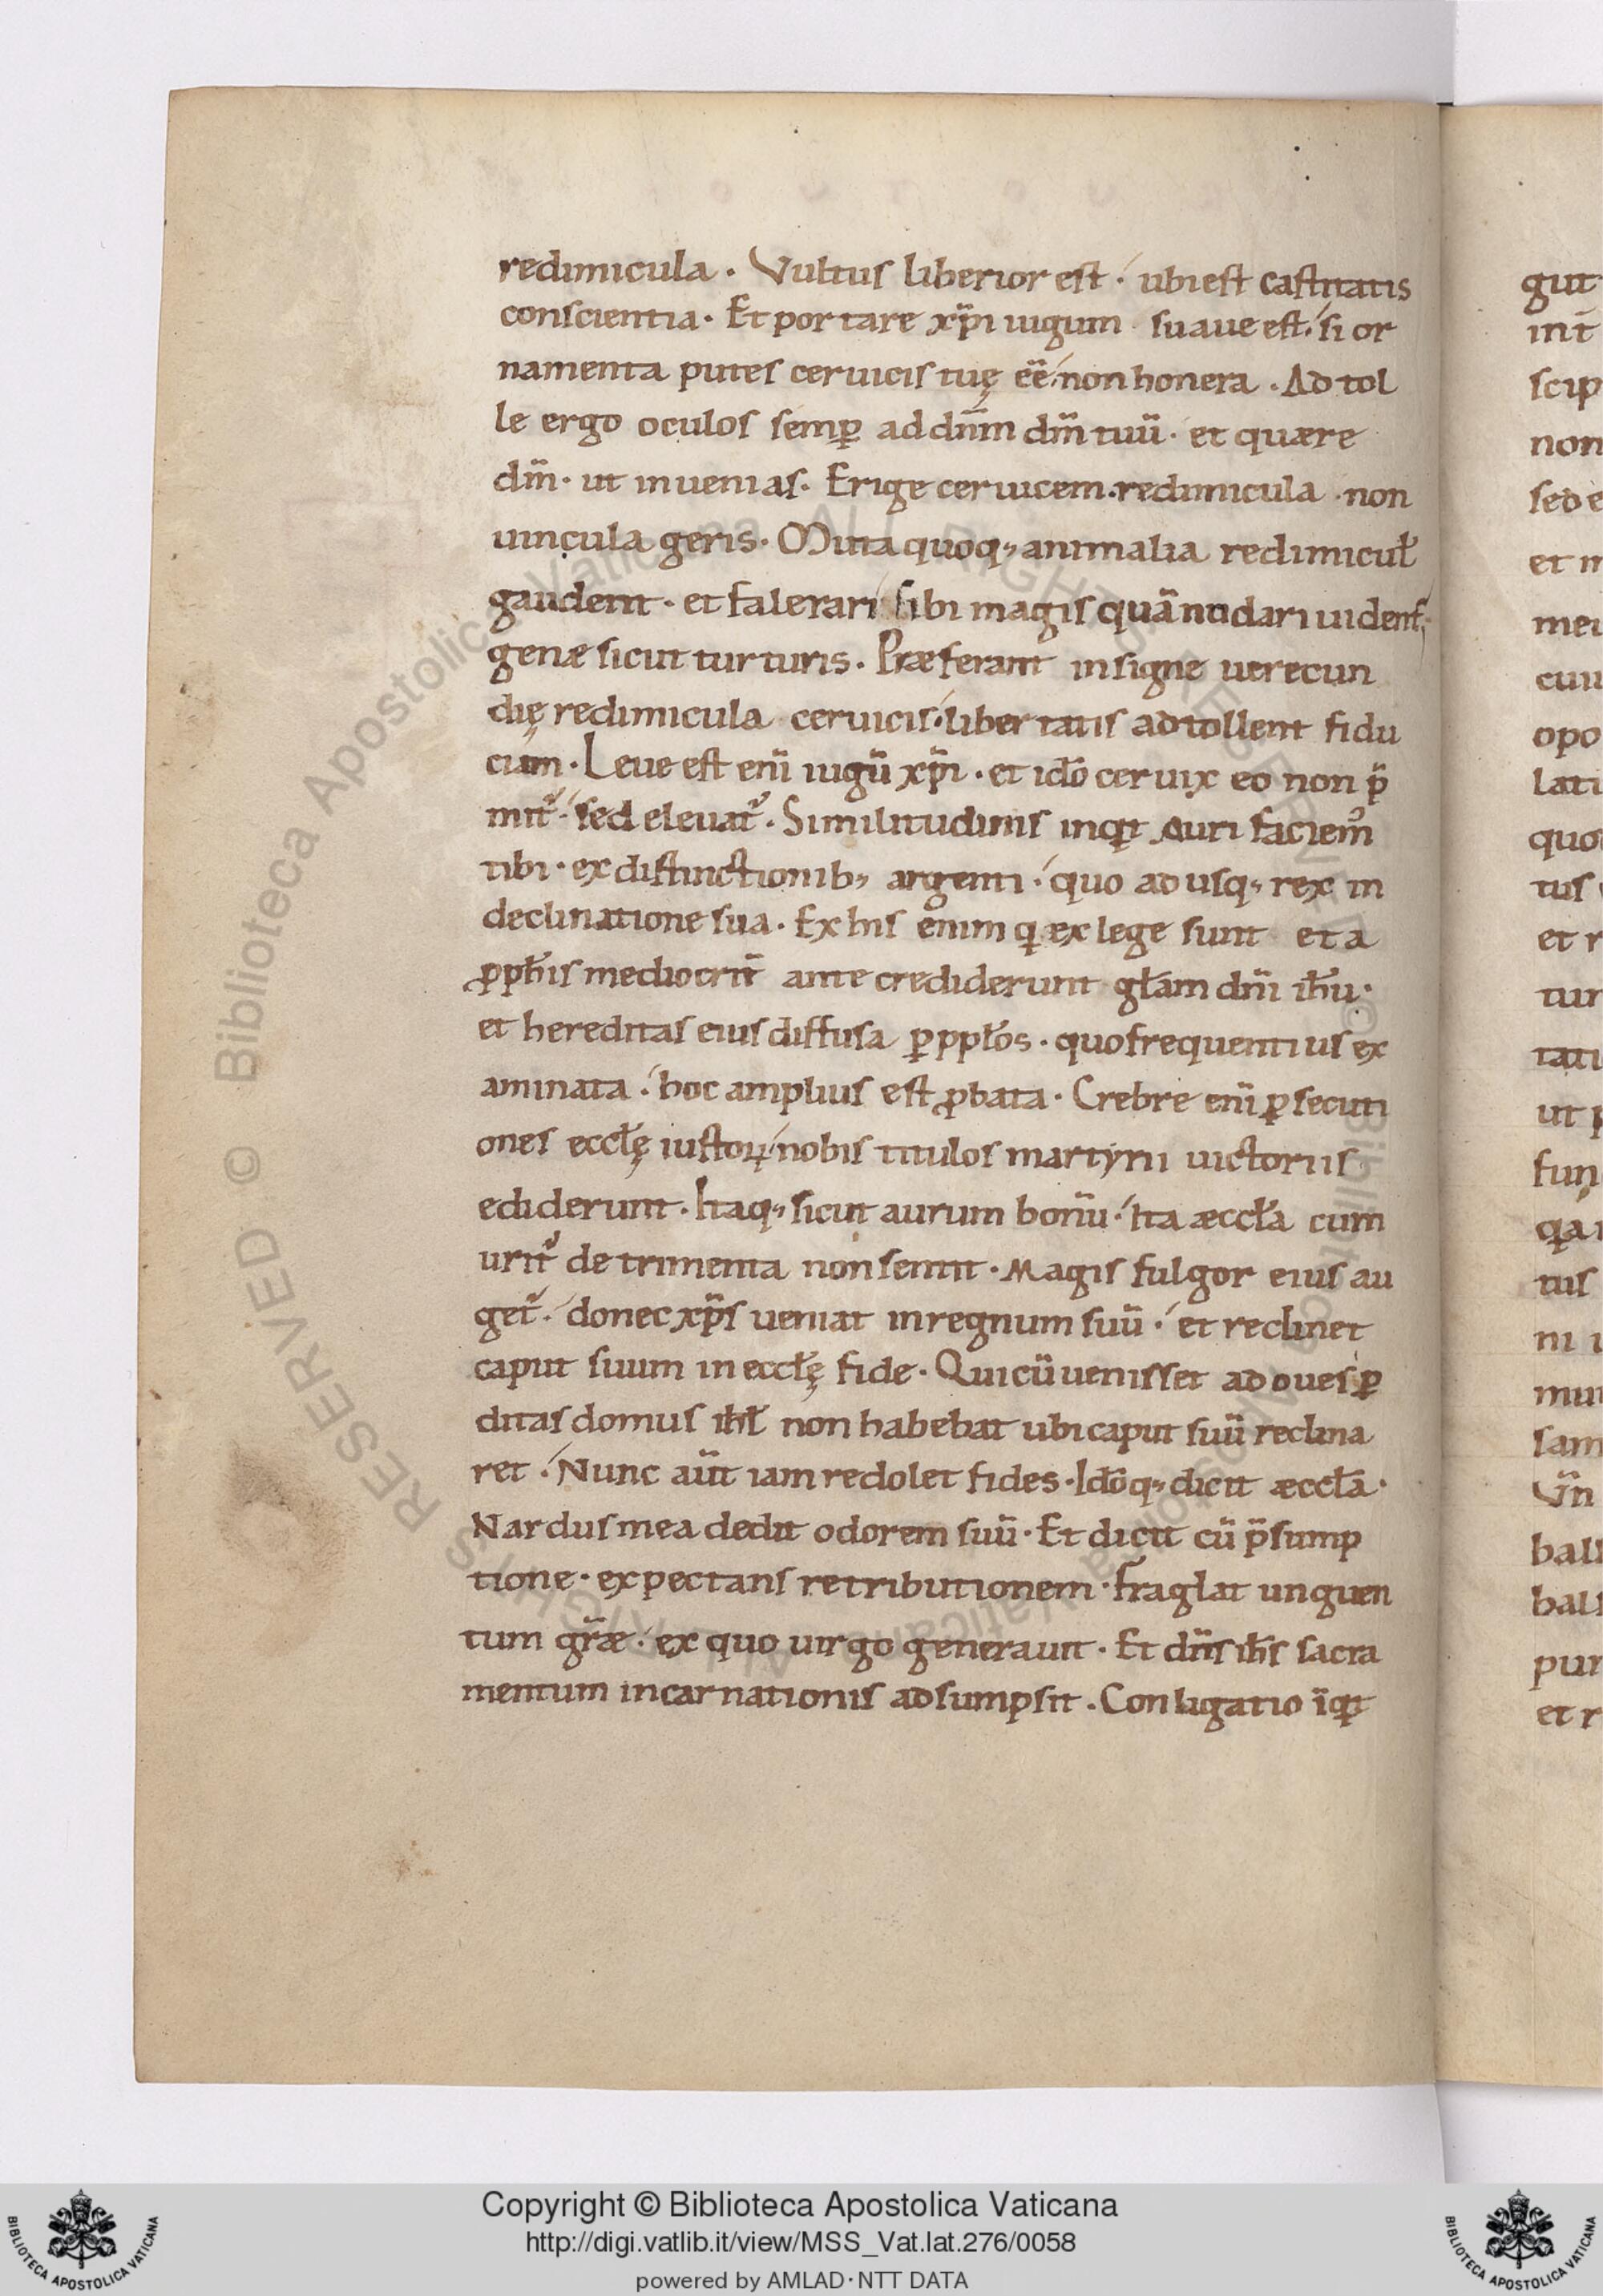 redimicula. Vultus liberior est. ubi est castitatis
conscientia. Et portare xp̄i iugum suaue est. si or
namenta putes ceruicis tuę eē. non honera. Ad tol
le ergo oculos semꝑ ad dn̄m dm̄ tuū. et quære
dm̄. ut inuenias. Erige ceruicem. redimicula. non
uincula geris. Muta quoq; animalia redimicul̄
gaudent. et falerari sibi magis quā nudari uident̄;
genæ sicut turturis. Præferant insigne uerecun
dię redimicula ceruicis. libertatis adtollent fidu
ciam. Leue est eni̅ iugū xp̄i. et ido̅ ceruix eo non p̄
mit᷑. sed eleuat᷑. Similitudinis inqt auri faciem᷑
tibi. ex distinctionib; argenti. quo adusq; rex in
declinatione sua. Ex his enim q ex lege sunt et a
ꝓph̄is mediocrit̄ ante crediderunt gl̄am dn̄i ih̄u.
et hereditas eius diffusa ꝑ ppl̄os. quo frequentius ex
aminata. hoc amplius est ꝓbata. Crebre eni̅ ꝑsecuti
ones eccl̄ę iustoꝝ nobis titulos martyrii uictoriis
ediderunt. Itaq; sicut aurum bonū. ita æccl̄a cum
urit᷑ detrimenta non sentit. Magis fulgor eius au
get᷑. donec xp̄s ueniat in regnum suū. et reclinet
caput suum in eccl̄ę fide. Qui cū uenisset ad oues ꝑ
ditas domus ihl̄ non habebat ubi caput suū reclina
ret. Nunc aūt iam redolet fides. Ido̅q; dicit æccl̄a.
Nardus mea dedit odorem suū. Et dicit cū p̄sump
tione. expectans retributionem. fraglat unguen
tum gr̄æ. ex quo uirgo generauit. Et dn̄s ih̄s sacra
mentum incarnationis adsumpsit. Conligatio īqt
gut
init
scip
non
sed e
et m
meu
cuiu
opo
lati
quo
tus
et r
tur
tati
ut p
fun
qa
tus
ni
mu
sam
Vn̄
ball
ball
pur
et r
© Biblioteca Apostolica Vaticana ALL RIGHTS RESERVED
Copyright © Biblioteca Apostolica Vaticana
http://digi.vatlib.it/view/MSS_Vat.lat.276/0058
powered by AMLAD·NTT DATA
BIBLIOTECA APOSTOLICA VATICANA
BIBLIOTECA APOSTOLICA VATICANA